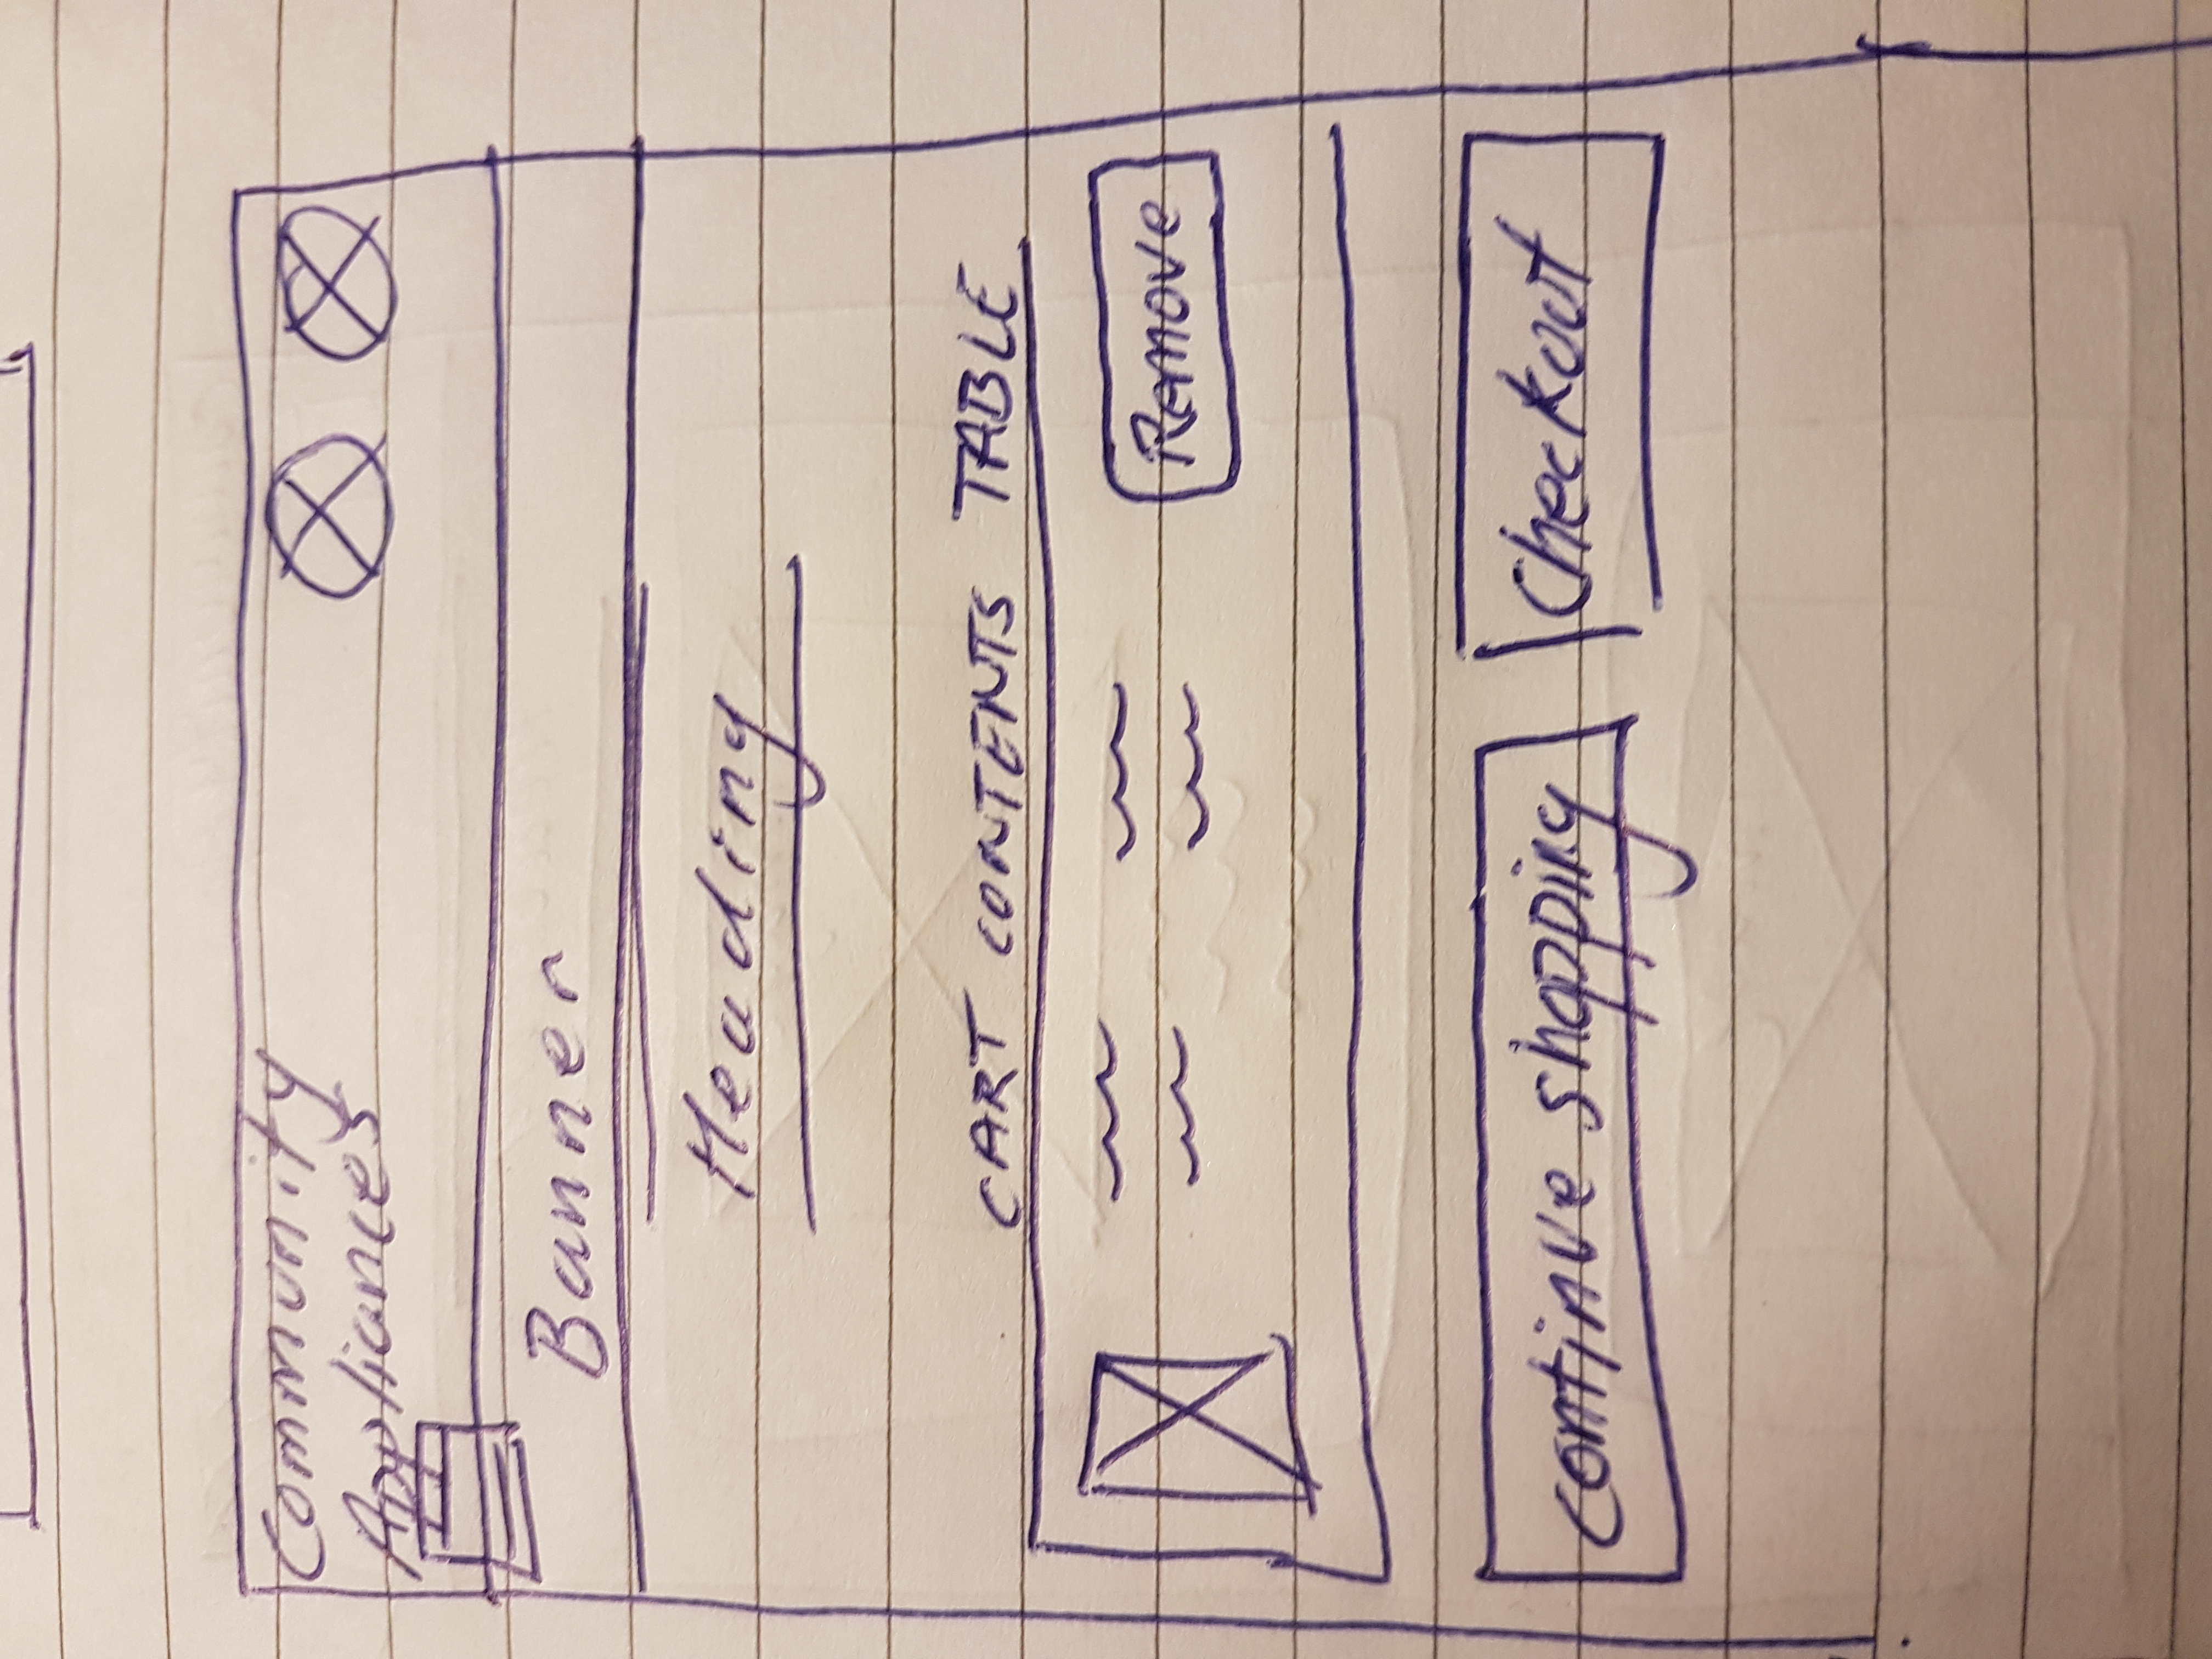 Community
Appliances
Banner
Heading
CART CONTENTS TABLE
Remove
continue shopping
Checkout